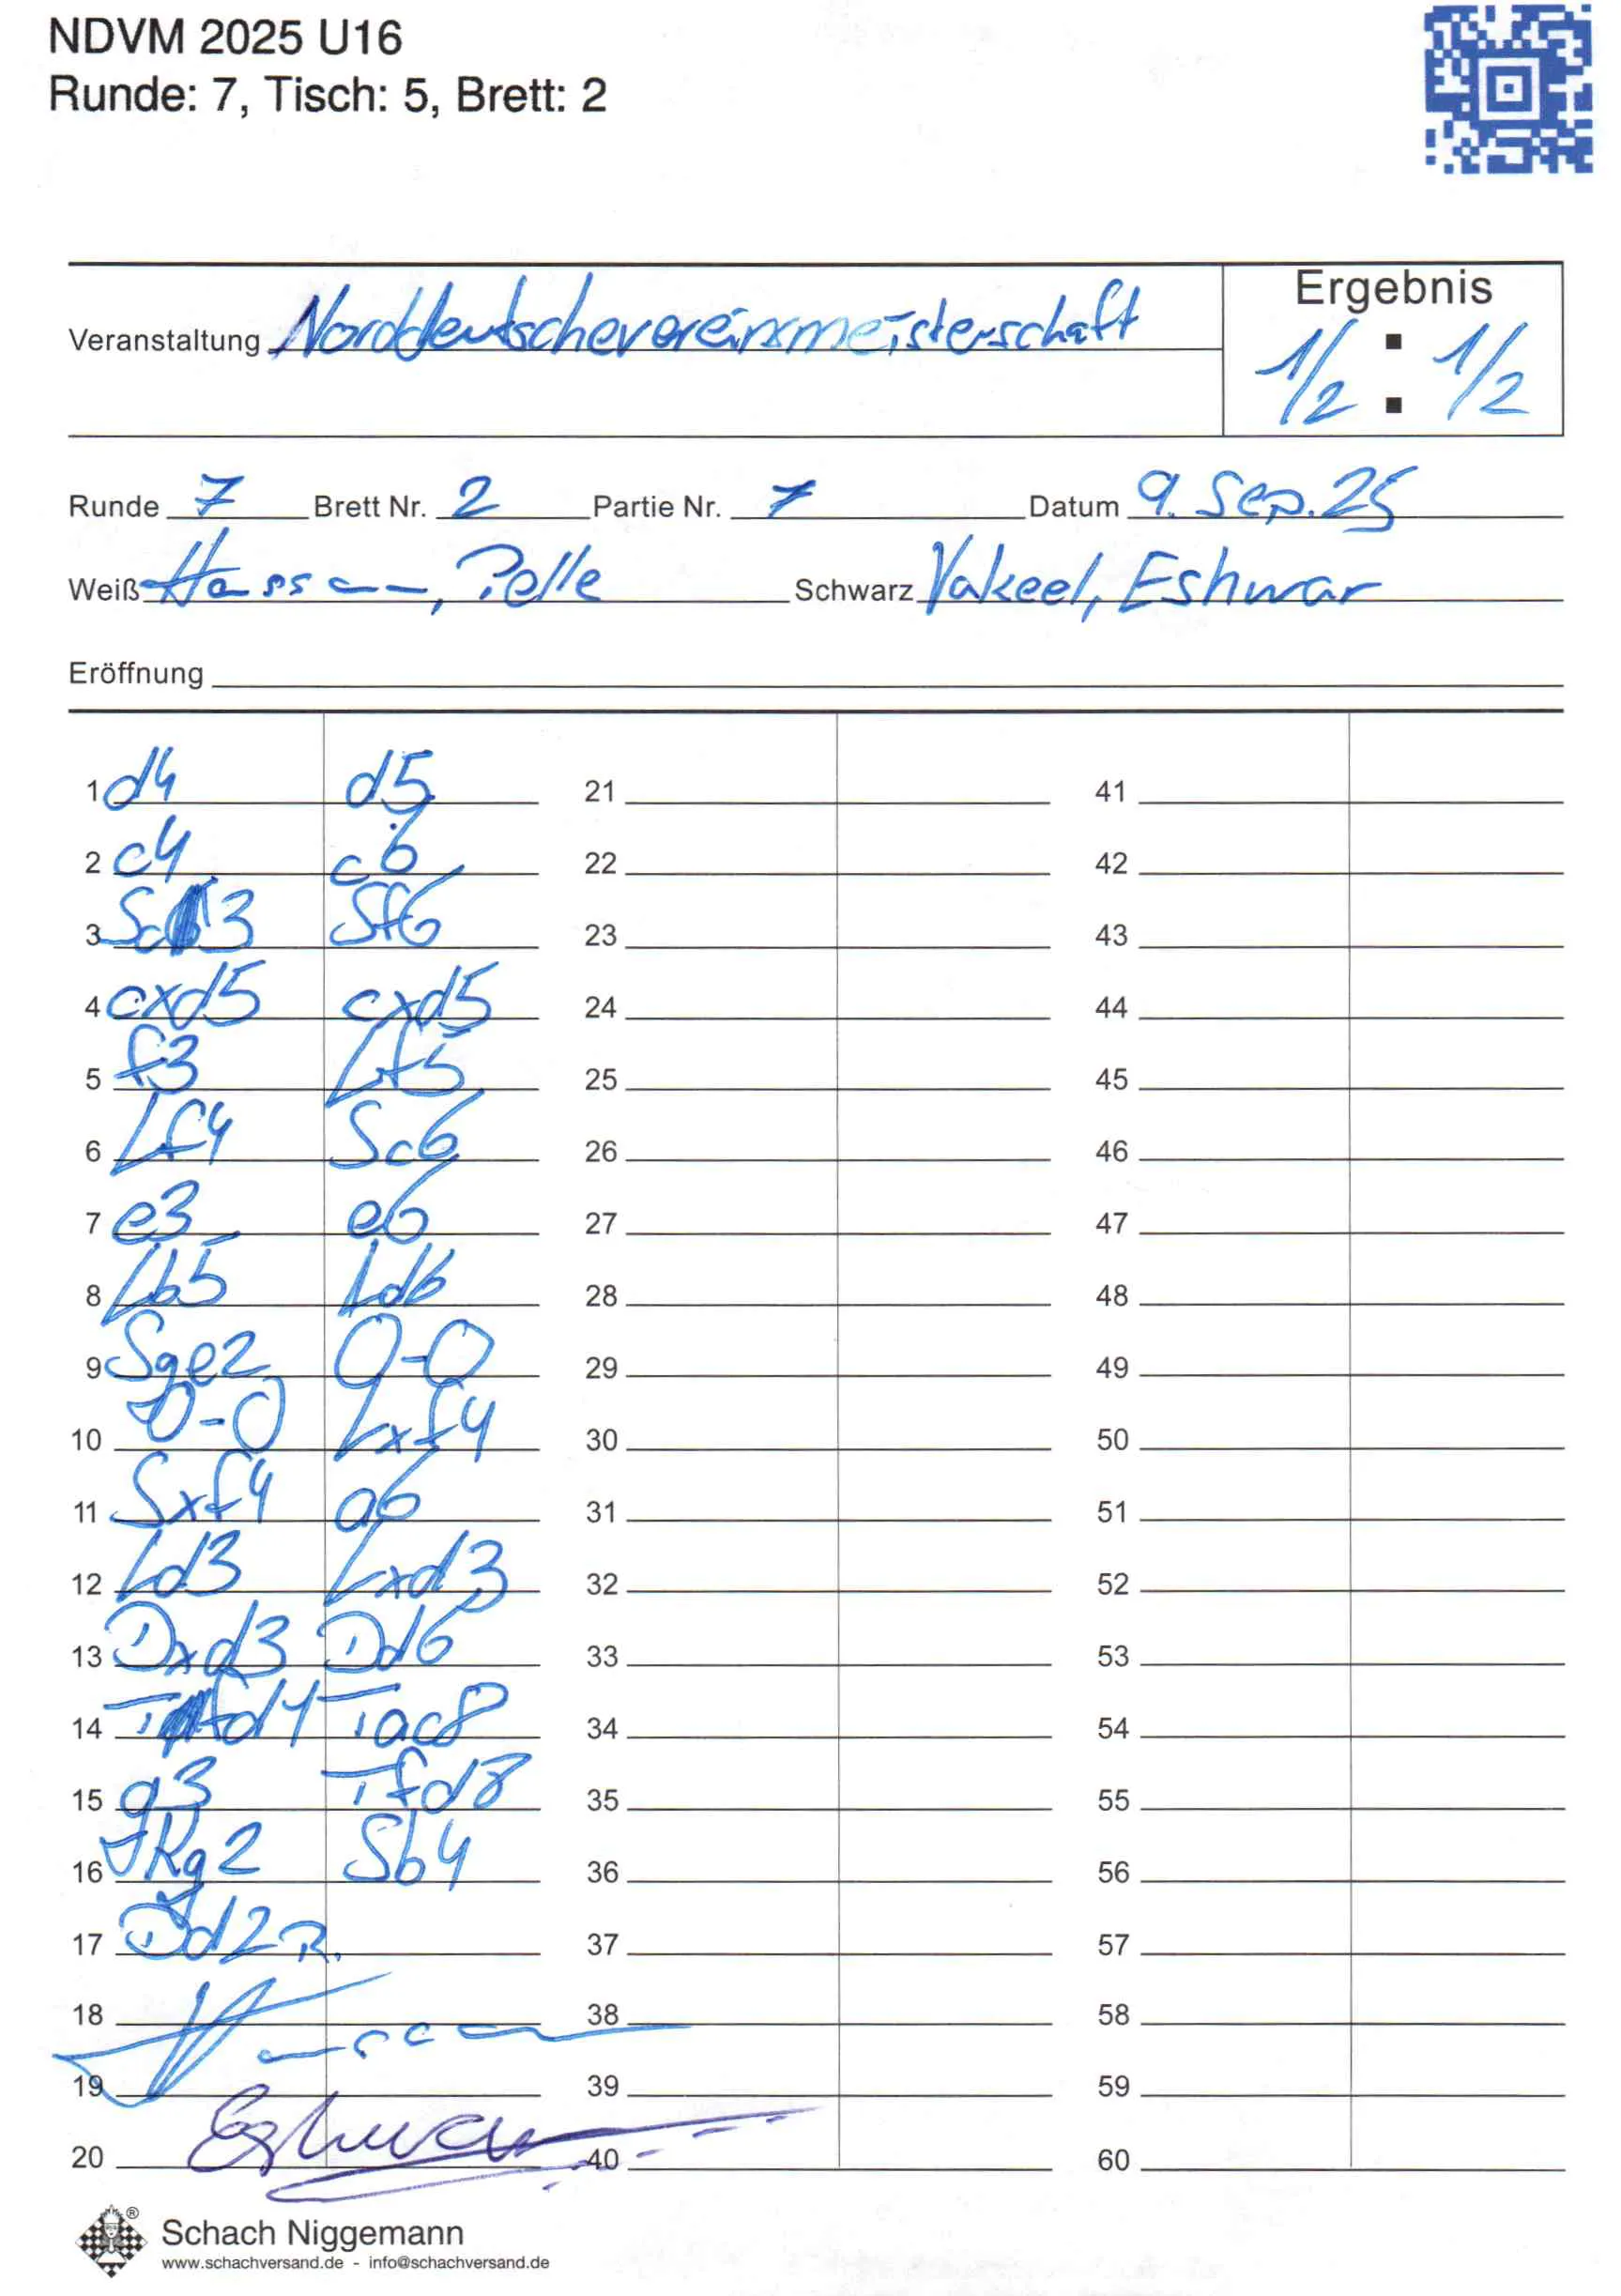 NDVM 2025 U16
Runde: 7, Tisch: 5, Brett: 2
Veranstaltung Norddeutschevereinsmeisterschaft
Ergebnis
1/2 : 1/2
Runde 7 Brett Nr. 2 Partie Nr. 7 Datum 9. Sep. 25
Weiß Hassmann, Pelle Schwarz Vakeel, Eshwar
Eröffnung
1 d4 d5 21 41
2 c4 c6 22 42
3 Sc3 Sf6 23 43
4 cxd5 cxd5 24 44
5 f3 Lf5 25 45
6 Lf4 Sc6 26 46
7 e3 e6 27 47
8 Lb5 Ld6 28 48
9 Sge2 0-0 29 49
10 0-0 Lxf4 30 50
11 Sxf4 a6 31 51
12 Ld3 Lxd3 32 52
13 Dxd3 Dd6 33 53
14 Tfd1 Tac8 34 54
15 g3 Tfd8 35 55
16 Kg2 Sb4 36 56
17 Dd2 R. 37 57
18 38 58
19 39 59
20 Eshwar 40 60
Schach Niggemann
www.schachversand.de - info@schachversand.de